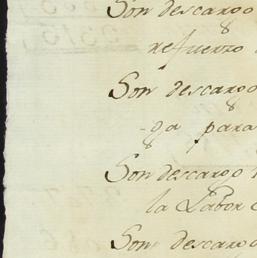 Son descargo
refuerzo
Son descargo
ga para
Son descargo
la Labor
Son descargo